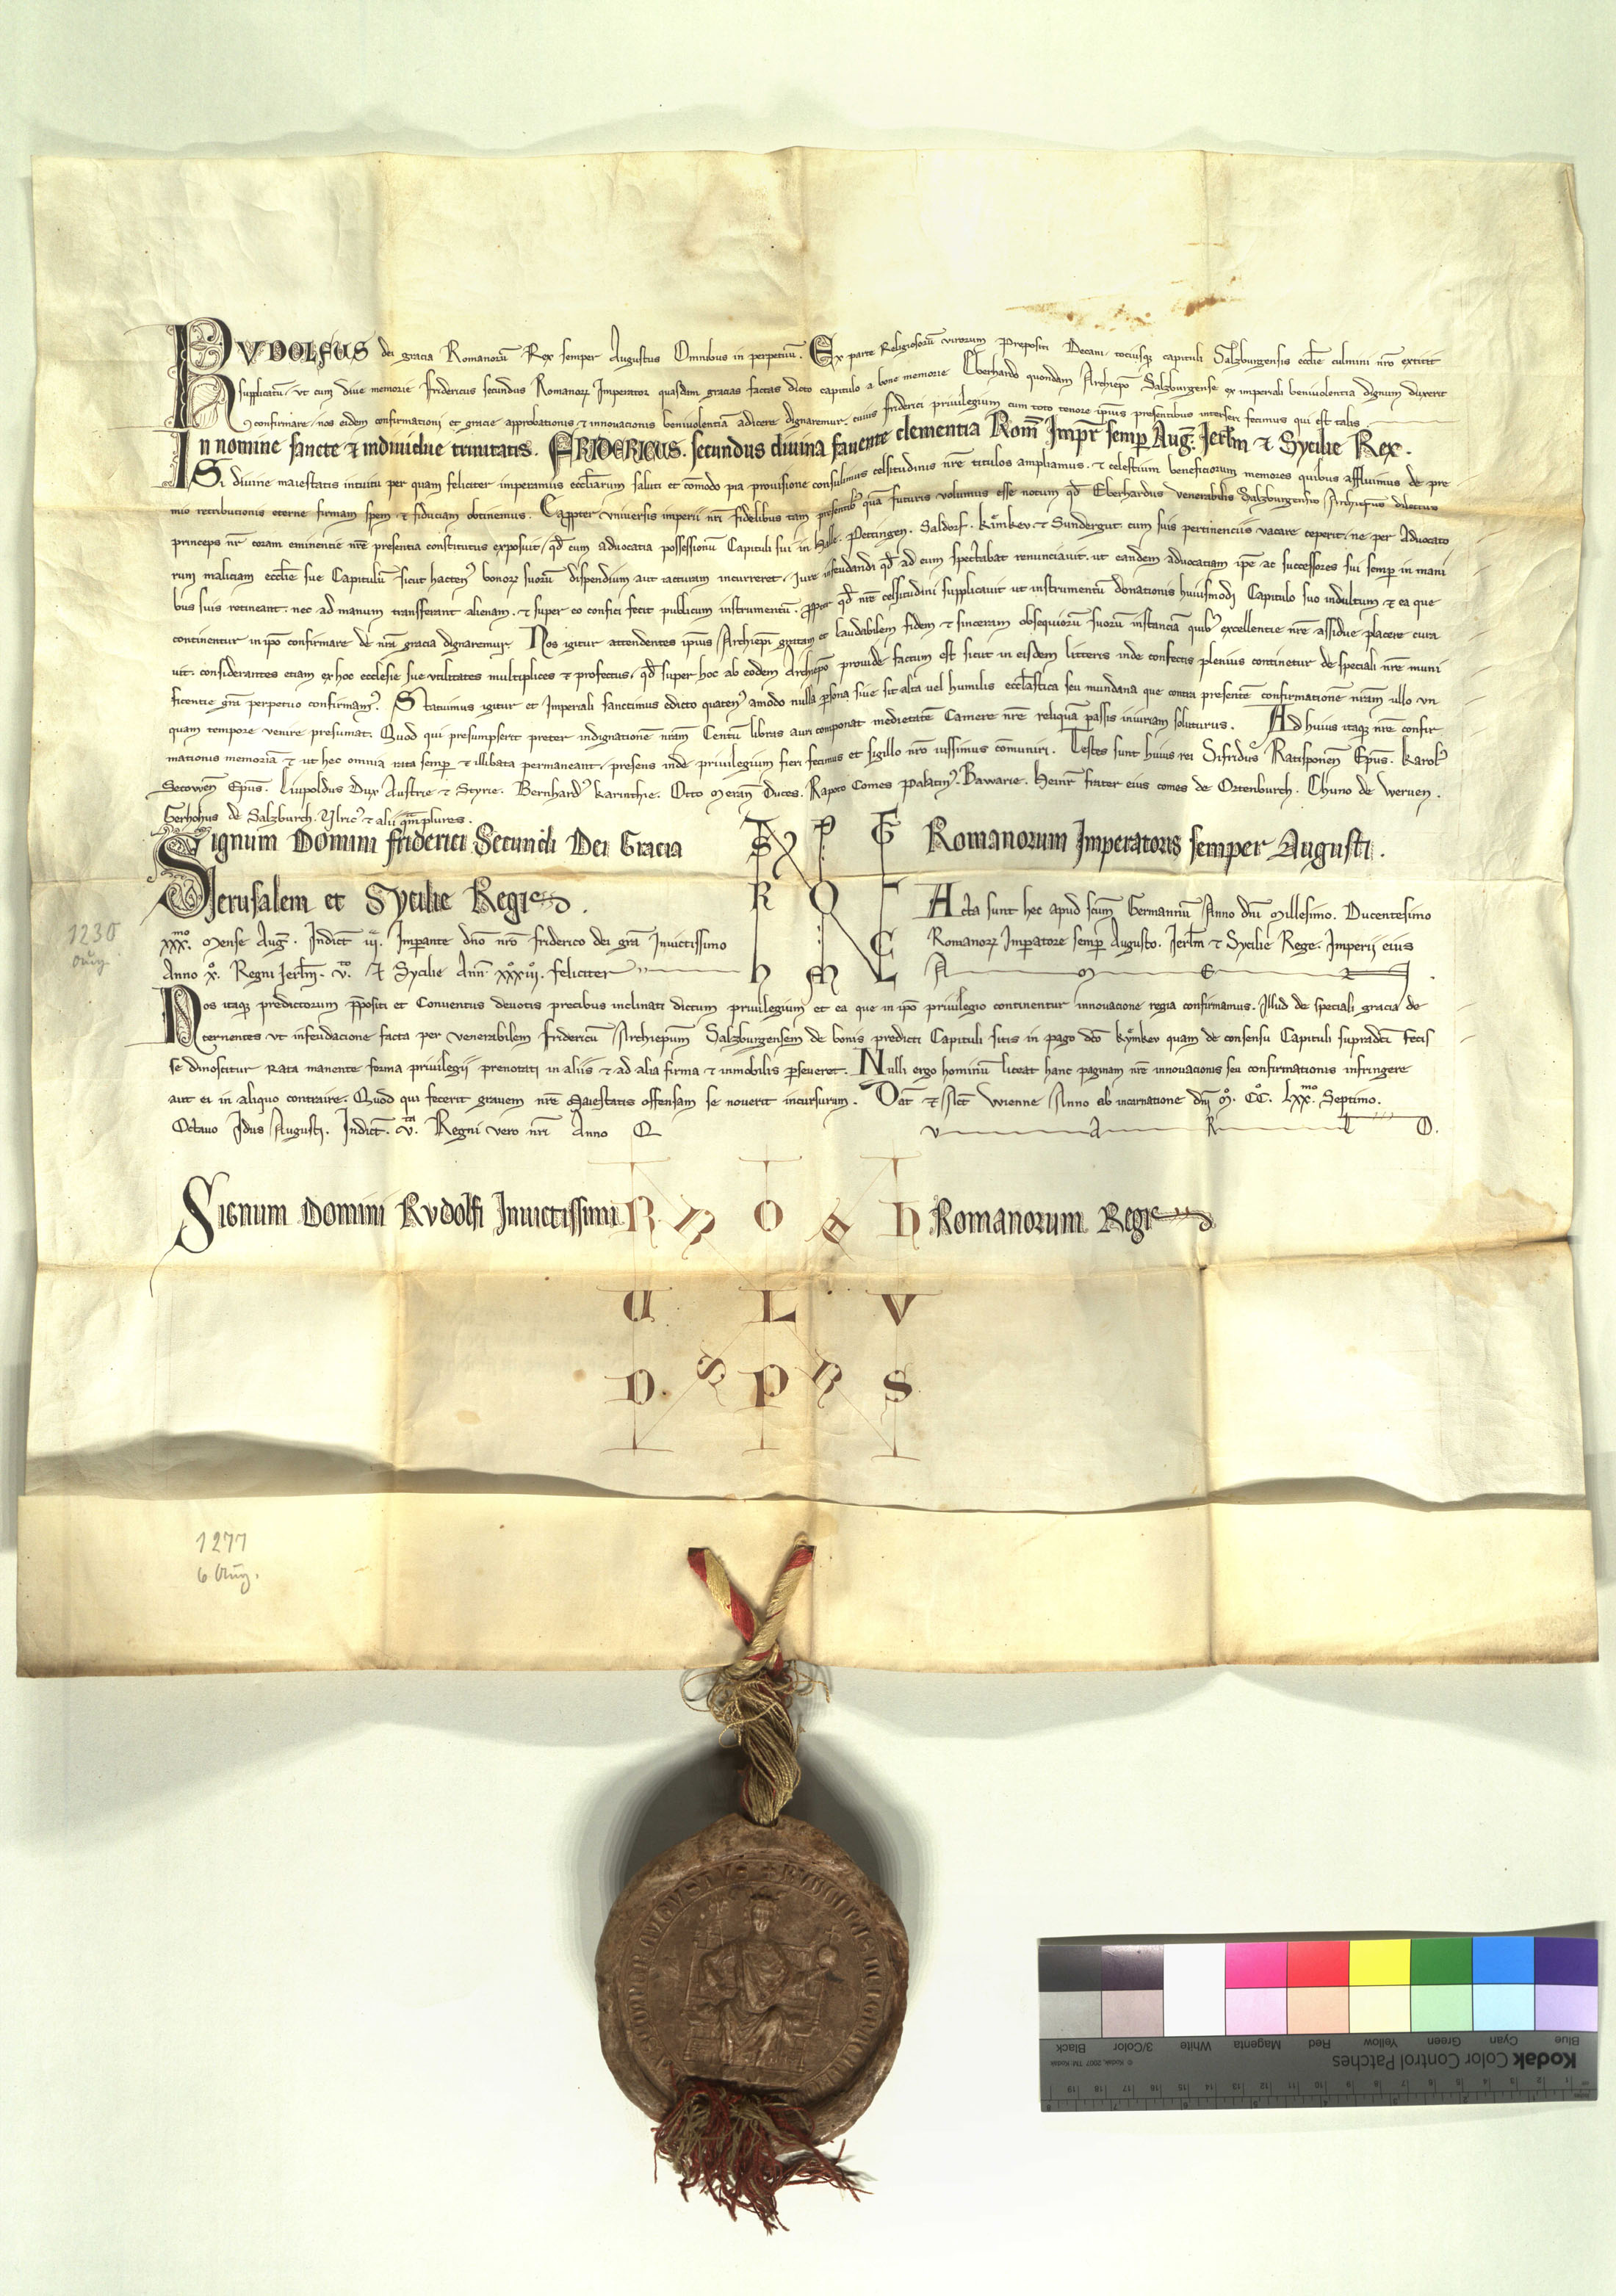 RVDOLFUS dei gracia Romanorū Rex semper Augustus Omnibus in perpetuū. Ex parte Religiosorū virorum Prepositi Decani tociusqȝ capituli Salzburgensis eccl̄ie culmini nr̄o extitit
supplicatū. vt cum diue memorie Fridericus secundus Romanorꝝ Imperator quasdam gracias factas dicto capitulo a bone memorie Eberhardo quondam Archiep̄o Salzburgense ex imperiali beniuolentia dignum duxerit
ꝯfirmare. nos eidem confirmationi et gracie approbationis ⁊ innouacionis beniuolentiā adicere dignaremur. cuius Friderici priuilegium cum toto tenore ip̄ius presentibus interseri fecimus qui est talis.
In nomine sancte ⁊ indiuidue trinitatis. FRIDERICUS. secundus diuina fauente clementia Rom̄ Imp̄r semꝑ Auḡ. Ierl̄m ⁊ Sycilie Rex.
Si diuine maiestatis intuitu per quam feliciter imperamus eccl̄iarum saluti et cōmodo pia prouisione consulimus celsitudinis nr̄e titulos ampliamus. ⁊ celestium beneficiorum memores quibus affluimus de pre
mio retributionis eterne firmam spem ⁊ fiduciam obtinemus. Eaꝓpter vniuersis imperii nr̄i fidelibus tam presentibꝰ quā futuris volumus esse notum qd̄ Eberhardus venerabilis Salzburgensis Archiep̄us dilectus
princeps nr̄ coram eminentie nr̄e presentia constitutus exposuit qd̄ cum aduocatia possessionū Capituli sui in Halle. Pettingen. Saldorf. Kӱmkev. ⁊ Sundergut cum suis pertinenciis vacare ceperit. ne per Aduocato
rum maliciam eccl̄ie sue Capitulū sicut hactenꝰ bonorꝝ suorū dispendium aut iacturam incurreret. Iure infeudandi qd̄ ad eum spectabat renunciauit. ut eandem aduocatiam ip̄e ac successores sui semꝑ in mani
bus suis retineant. nec ad manum transferant alienam. ⁊ super eo confici fecit publicum instrumentū. ꝓpter qd̄ nr̄e celsitudini supplicauit ut instrumentū donationis huiusmodi Capitulo suo indultum ⁊ ea que
continentur in ip̄o confirmare de nr̄a gracia dignaremur. Nos igitur attendentes ip̄ius Archiep̄i gratam et laudabilem fidem ⁊ sinceram obsequiorū suorū instanciā quibꝰ excellentie nr̄e assidue placere cura
uit. considerantes etiam ex hoc ecclesie sue vtilitates multiplices ⁊ profectus. qd̄ super hoc ab eodem Archiep̄o prouide factum est sicut in eisdem litteris inde confectis plenius continetur de speciali nr̄e muni
ficentie gr̄a perpetuo confirmamꝰ. Statuimus igitur et Imperiali sanctimus edicto quatenꝰ amodo nulla ꝑsona siue sit alta uel humilis eccl̄astica seu mundana que contra presentē confirmationē nr̄am ullo vn
quam tempore venire presumat. Quod qui presumpserit preter indignationē nr̄am Centū libras auri componat medietatē Camere nr̄e reliquā passis iniuriam soluturus. Ad huius itaqȝ nr̄e confir
mationis memoriā ⁊ ut hec omnia rata semꝑ ⁊ illibata permaneant. presens inde priuilegium fieri fecimus et sigillo nr̄o iussimus cōmuniri. Testes sunt huius rei Sifridus Ratisponēn Ep̄us. Karolꝰ
Secowēn Ep̄us. Liupoldus Dux Austrie ⁊ Styrie. Bernhardꝰ Karinthie. Otto Merān Duces. Rapoto Comes Palatinꝰ Bawarie. Heinr̄ frater eius comes de Ortenburch. Chuno de Weruen.
Gerhohus de Salzburch. Vlricꝰ ⁊ alii qm̄plures.
Signum Domini Friderici Secundi Dei Gracia Romanorum Imperatoris semper Augusti.
Ierusalem et Sycilie Regis.
Acta sunt hec apud scm̄ Germanū Anno dn̄i Millesimo. Ducentesimo
xxx.mo Mense Auḡ. Indict̄. iij. Imperante dn̄o nr̄o Friderico dei gr̄a Inuictissimo Romanorꝝ Imperatore semꝑ Augusto. Ierl̄m ⁊ Sycilie Rege. Imperij eius
Anno x̊. Regni Ierl̄m. v̊. ⁊ Sycilie Ann̄ xxxiij̊. feliciter A M E N.
Nos itaqȝ predictorum p̄positi et Conuentus deuotis precibus inclinati dictum priuilegium et ea que in ip̄o priuilegio continentur innouacione regia confirmamus. Illud de speciali gracia de
cernentes vt infeudacione facta per venerabilem Fridericū Archiep̄um Salzburgensem de bonis predicti Capituli sitis in pago dc̄o Kӱmkev quam de consensu Capituli supradc̄i fecis
se dinoscitur rata manente forma priuilegij prenotati in aliis ⁊ ad alia firma ⁊ inmobilis ꝑseueret. Nulli ergo hominū liceat hanc paginam nr̄e innouacionis seu confirmationis infringere
aut ei in aliquo contraire. Quod qui fecerit grauem nr̄e Maiestatis offensam se nouerit incursurum. Dat̄ ⁊ Act̄ Wienne Anno ab incarnatione dn̄i M̊. CC̊. Lxx.mo Septimo.
Octauo Idus Augusti. Indict̄. v.ta Regni vero nr̄i Anno Q V A R T O.
Signum Domini Rvdolfi Inuictissimi Romanorum Regis
1230
Aug.
1277
6 Aug.
Kodak Color Control Patches
© Kodak, 2007 TM: Kodak
Blue Cyan Green Yellow Red Magenta White 3/Color Black